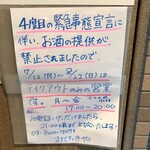 4度目の緊急事態宣言に
伴い、お酒の提供が
禁止されましたので、
7/12(月)〜8/22(日)は
テイクアウトのみの営業
です。月〜金
17:00−20:00
お電話いただけましたら